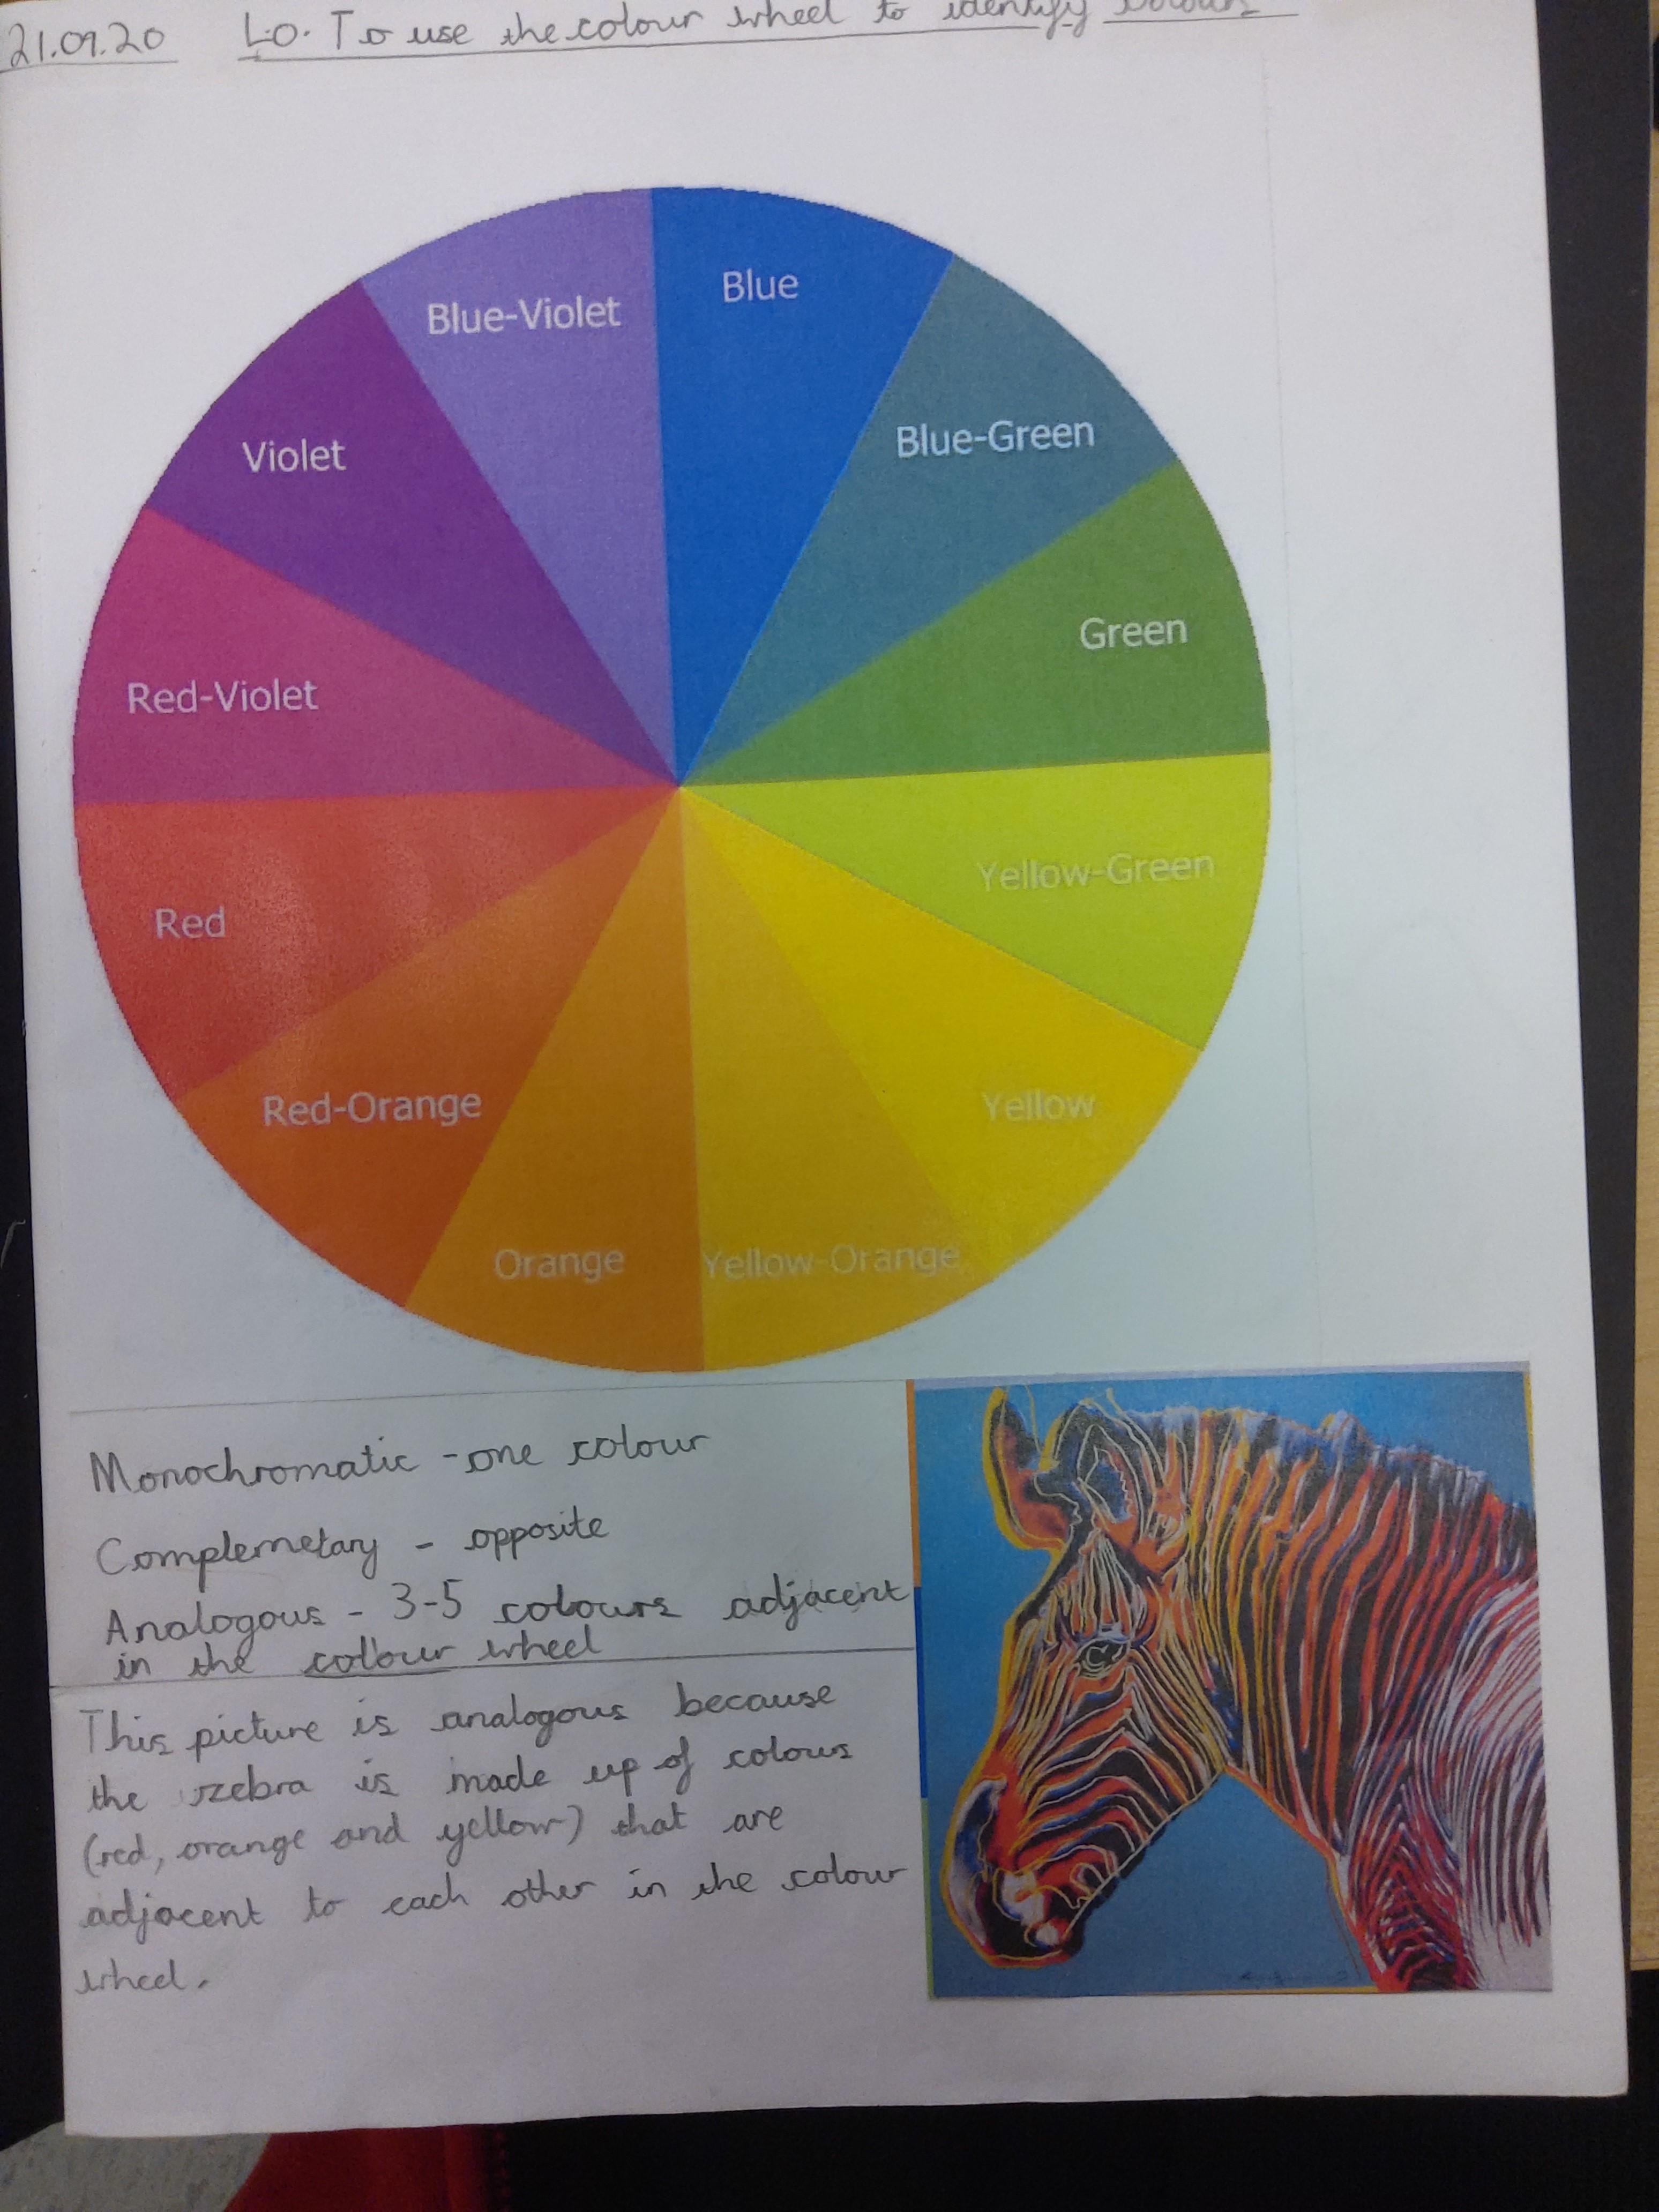 21.09.20 L.O. To use the colour wheel to identify colours
Blue-Violet
Blue
Violet
Blue-Green
Red-Violet
Green
Red
Yellow-Green
Red-Orange
Yellow
Orange
Yellow-Orange
Monochromatic - one colour
Complemetary - opposite
Analogous - 3-5 colours adjacent
in the colour wheel
This picture is analogous because
the zebra is made up of colous
(red, orange and yellow) that are
adjacent to each other in the colour
wheel.